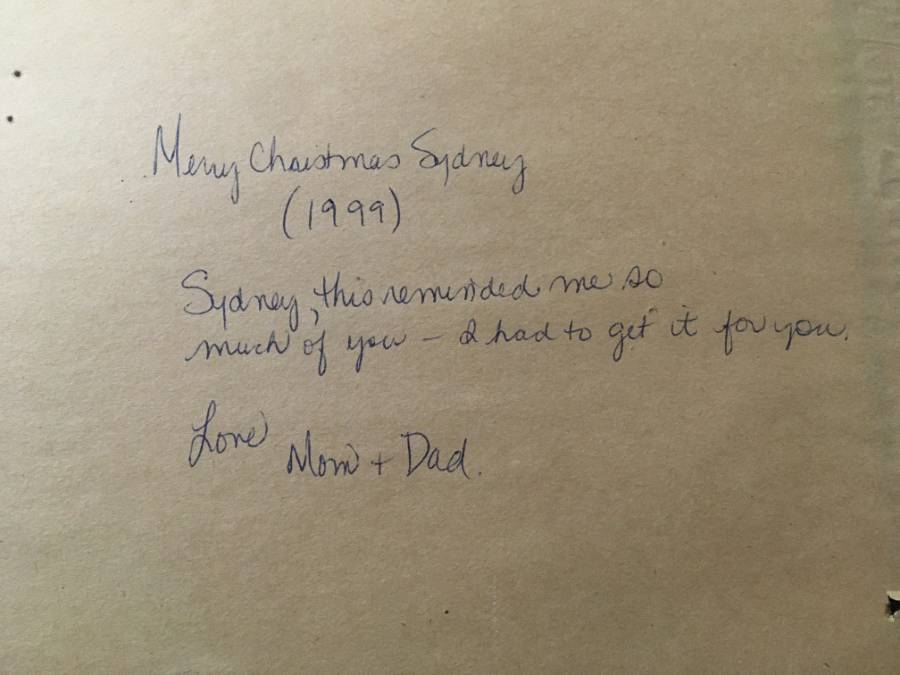 Merry Christmas Sydney
(1999)
Sydney, this reminded me so
much of you - I had to get it for you.
Love
Mom + Dad.